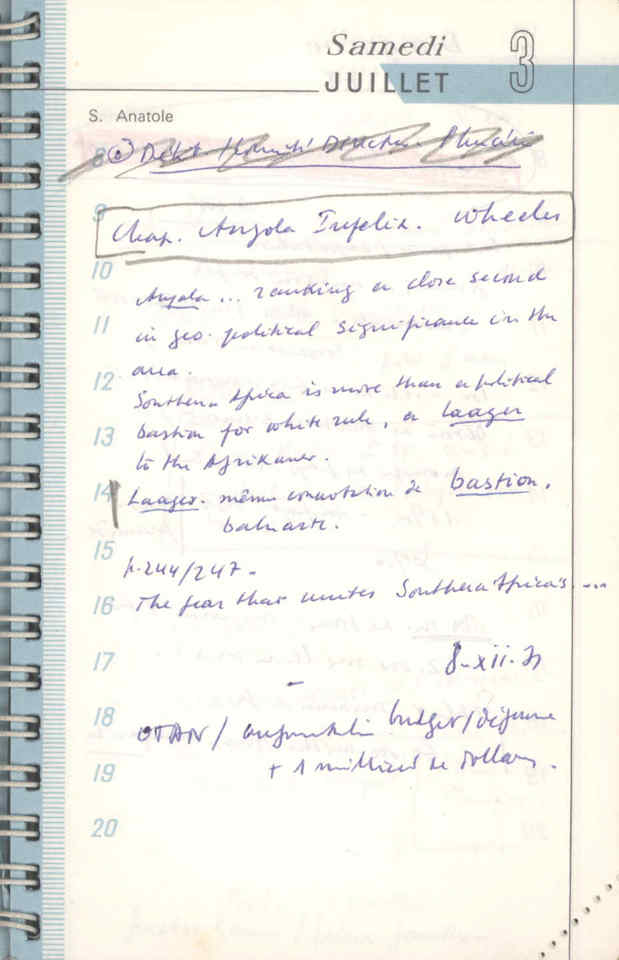 Samedi 3
JUILLET
S. Anatole
8
9
Chap. Angola Infelix. Wheeler
10
Angola ... ranking a close second
11
in geo-political significance in the
12
area.
Southern Africa is more than a political
13
bastion for white rule, a laager
to the Afrikaner.
14
Laager. même connotation de bastion.
baluarte.
15
p. 244/247.
16
The fear that unites Southern Africa's ...
17
8-xii-71
18
OTAN / augmentation budget/défense
19
+ 1 milliard de dollars.
20